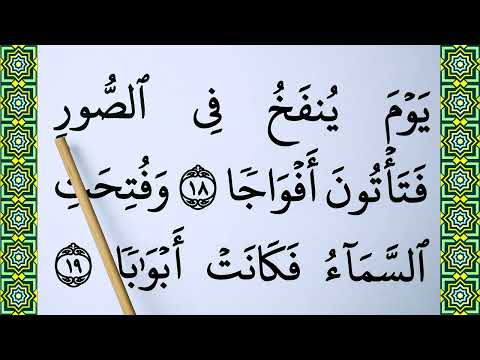 يَوْمَ يُنفَخُ فِى ٱلصُّورِ
فَتَأْتُونَ أَفْوَاجًا ١٨ وَفُتِحَتِ
ٱلسَّمَآءُ فَكَانَتْ أَبْوَٰبًا ١٩